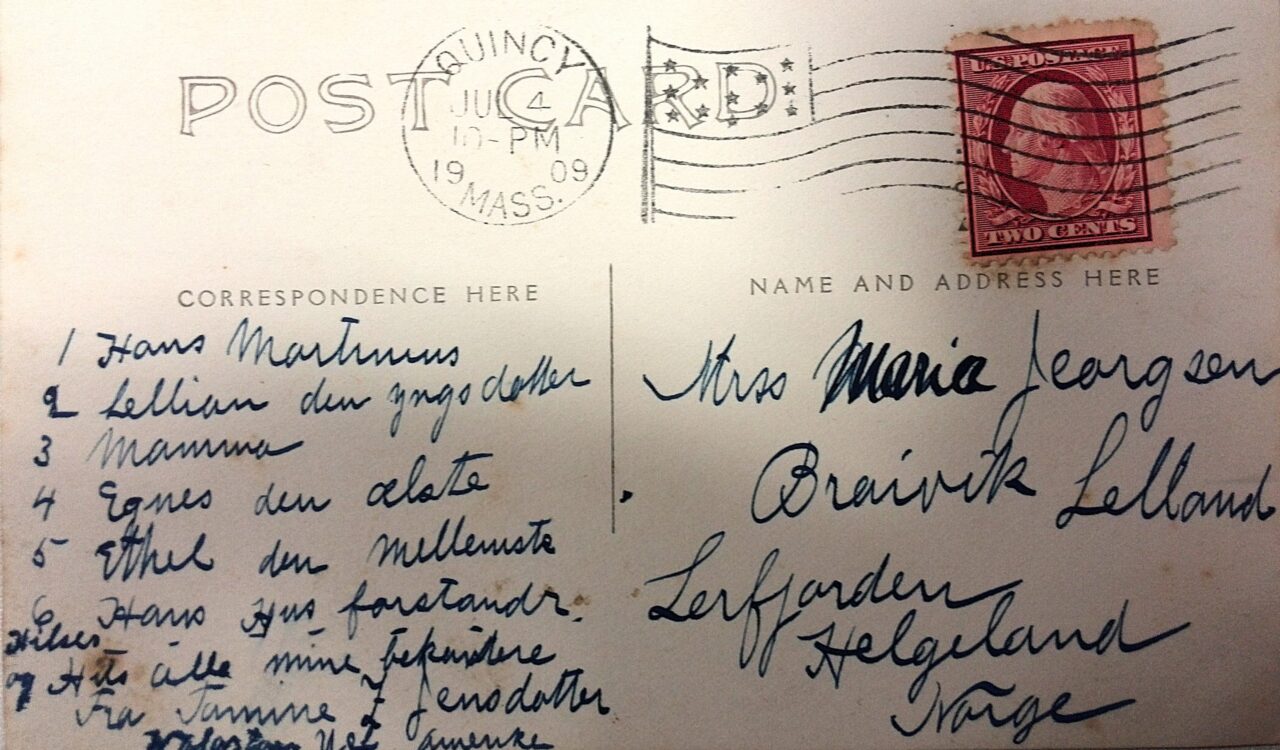 POST CARD
QUINCY
JUL 4
10-PM
19 09
MASS.
U.S. POSTAGE
TWO CENTS
CORRESPONDENCE HERE
NAME AND ADDRESS HERE
1 Hans Martinus
2 Lellian den yngsdatter
3 Mamma
4 Egnes den ælste
5 Ethel den Mellemste
6 Hans Hus forstandr.
Hilser
og Hils alle mine bekantere
Fra Tamine J Jensdatter
amerike
Mrss Maria Jeorgsen
Braivik Lelland
Lerfjorden
Helgeland
Norge